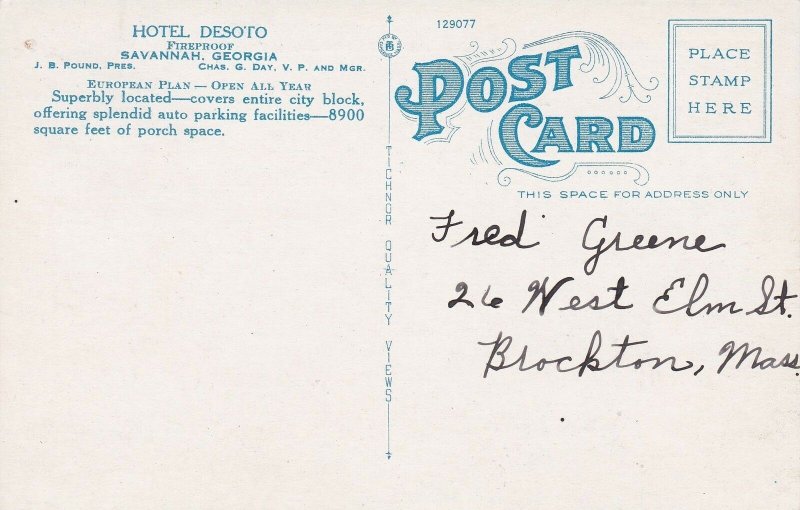 HOTEL DESOTO
FIREPROOF
SAVANNAH, GEORGIA
J. B. POUND, PRES. CHAS. G. DAY, V. P. AND MGR.
EUROPEAN PLAN — OPEN ALL YEAR
Superbly located—covers entire city block,
offering splendid auto parking facilities—8900
square feet of porch space.
TICHNOR QUALITY VIEWS
129077
POST CARD
PLACE
STAMP
HERE
THIS SPACE FOR ADDRESS ONLY
Fred Greene
26 West Elm St.
Brockton, Mass.